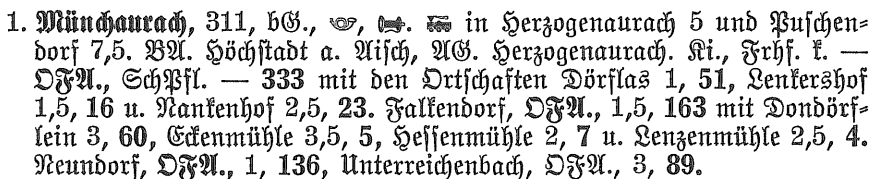 1. Münchaurach, 311, bG., in Herzogenaurach 5 und Puschen=
dorf 7,5. BA. Höchstadt a. Aisch, AG. Herzogenaurach. Ki., Frhf. k. —
OFA., SchPfl. — 333 mit den Ortschaften Dörflas 1, 51, Lenkershof
1,5, 16 u. Nankenhof 2,5, 23. Falkendorf, OFA., 1,5, 163 mit Dondörf=
lein 3, 60, Eckenmühle 3,5, 5, Hessenmühle 2, 7 u. Lenzenmühle 2,5, 4.
Neundorf, OFA., 1, 136, Unterreichenbach, OFA., 3, 89.